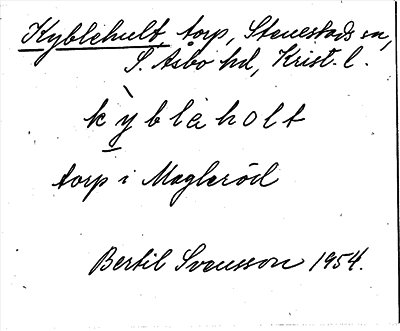 Kyblehult, torp, Stenestads sn,
S. Åsbo hd, Krist. l.
kỳblaholt
torp i Magleröd
Bertil Svensson 1954.